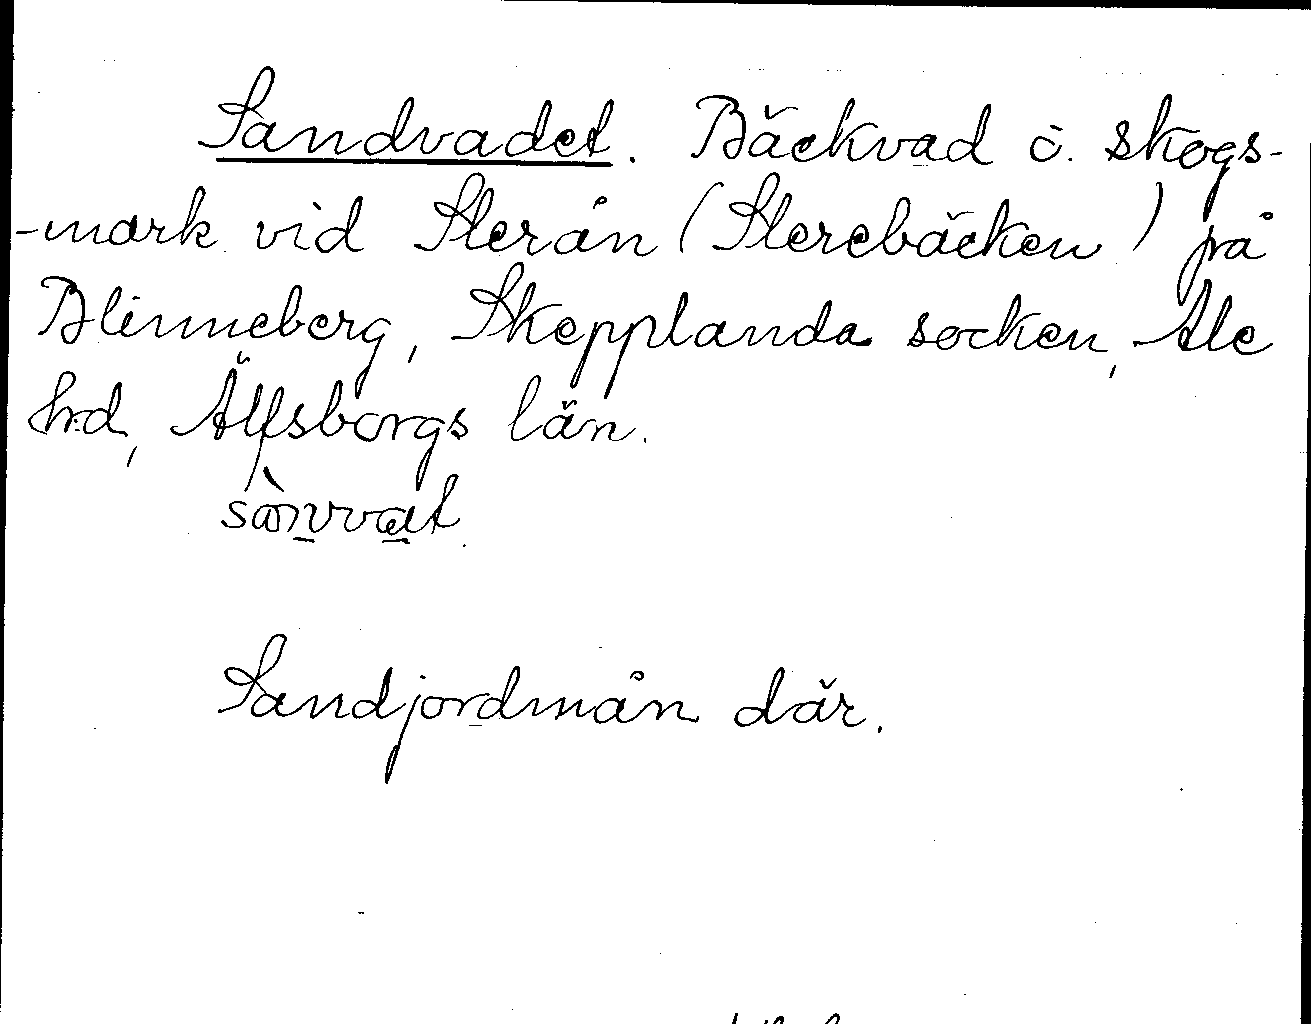 Sandvadet. Bäckvad ö. skogs-
-mark vid Slerån (Slerebäcken) på
Blinneberg, Skepplanda socken, Ale
hd, Älfsborgs län.
sànvvat
Sandjordmån där.